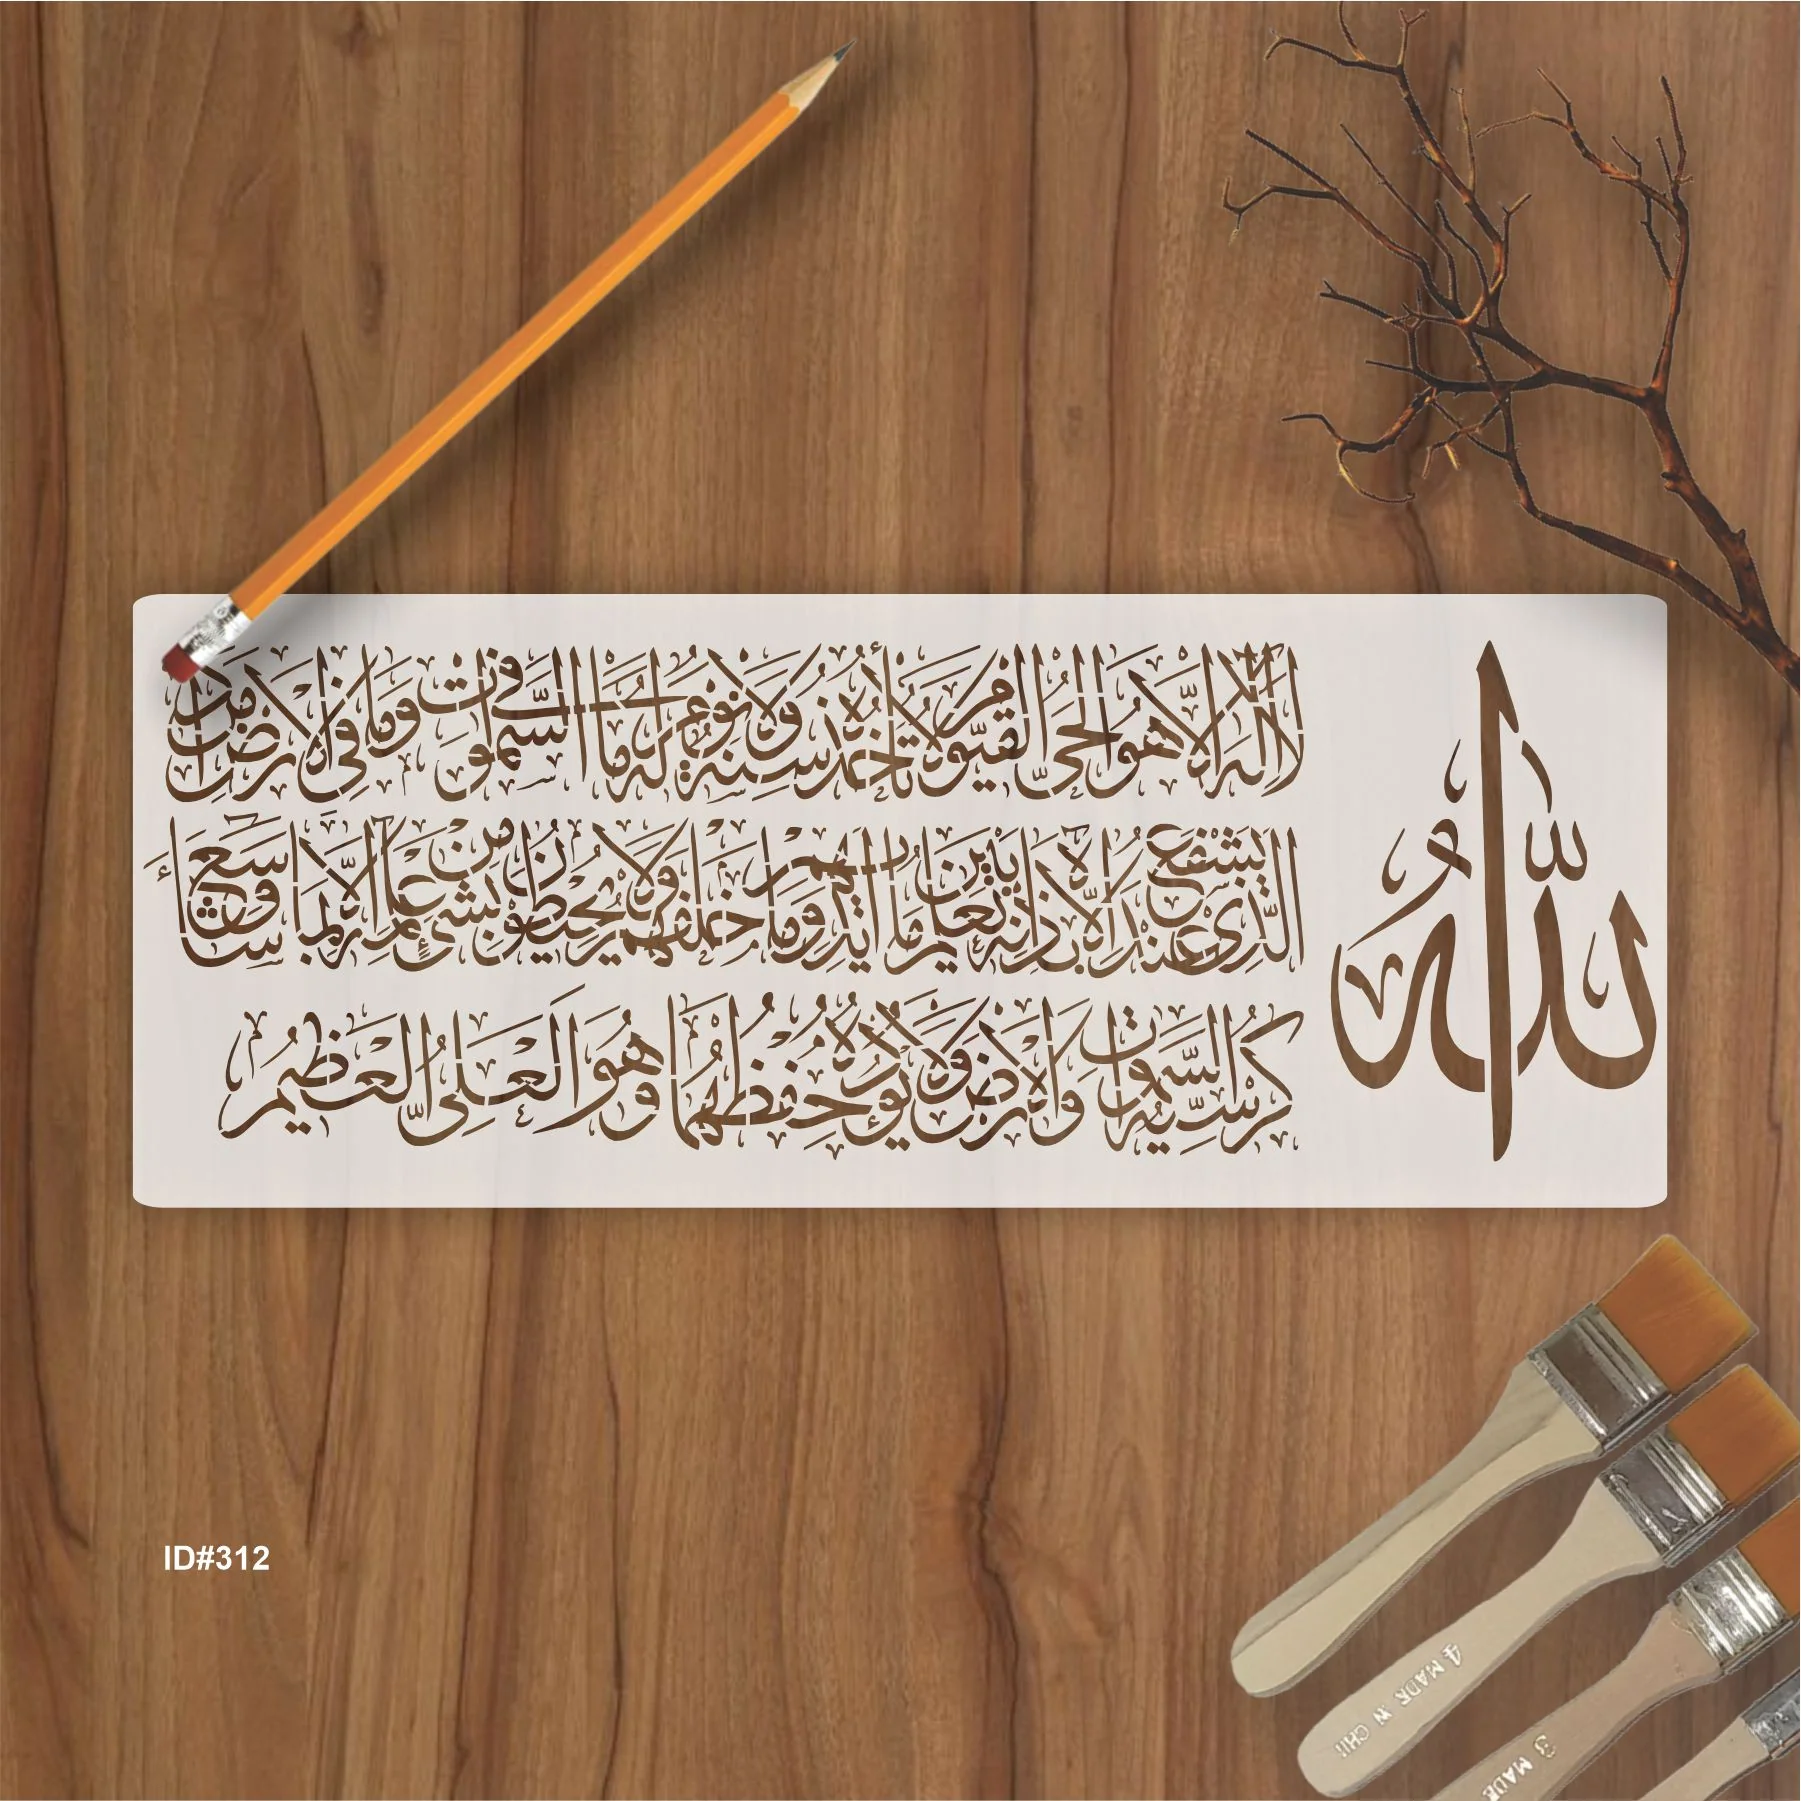 الله
لا إله إلا هو الحي القيوم لا تأخذه سنة ولا نوم له ما في السموت وما في الأرض من ذا
الذي يشفع عنده إلا بإذنه يعلم ما بين أيديهم وما خلفهم ولا يحيطون بشيء من علمه إلا بما شاء وسع
كرسيه السموات والأرض ولا يؤده حفظهما وهو العلي العظيم
ID#312
4 MADE IN CHI
3 MADE